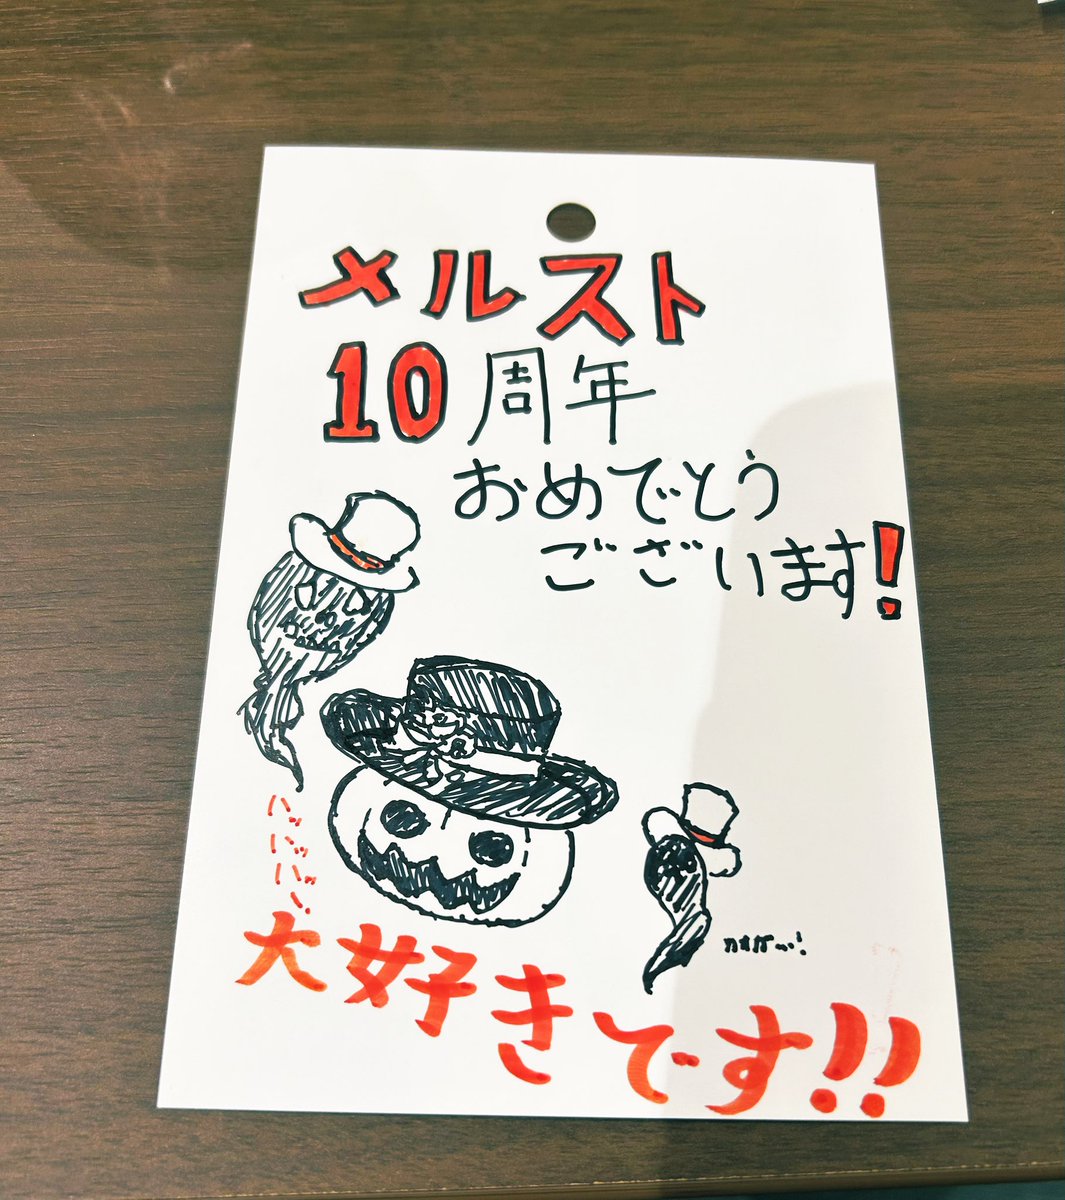 メルスト
10周年
おめでとう
ございます!
ハッハッハッ!
大好きです!!